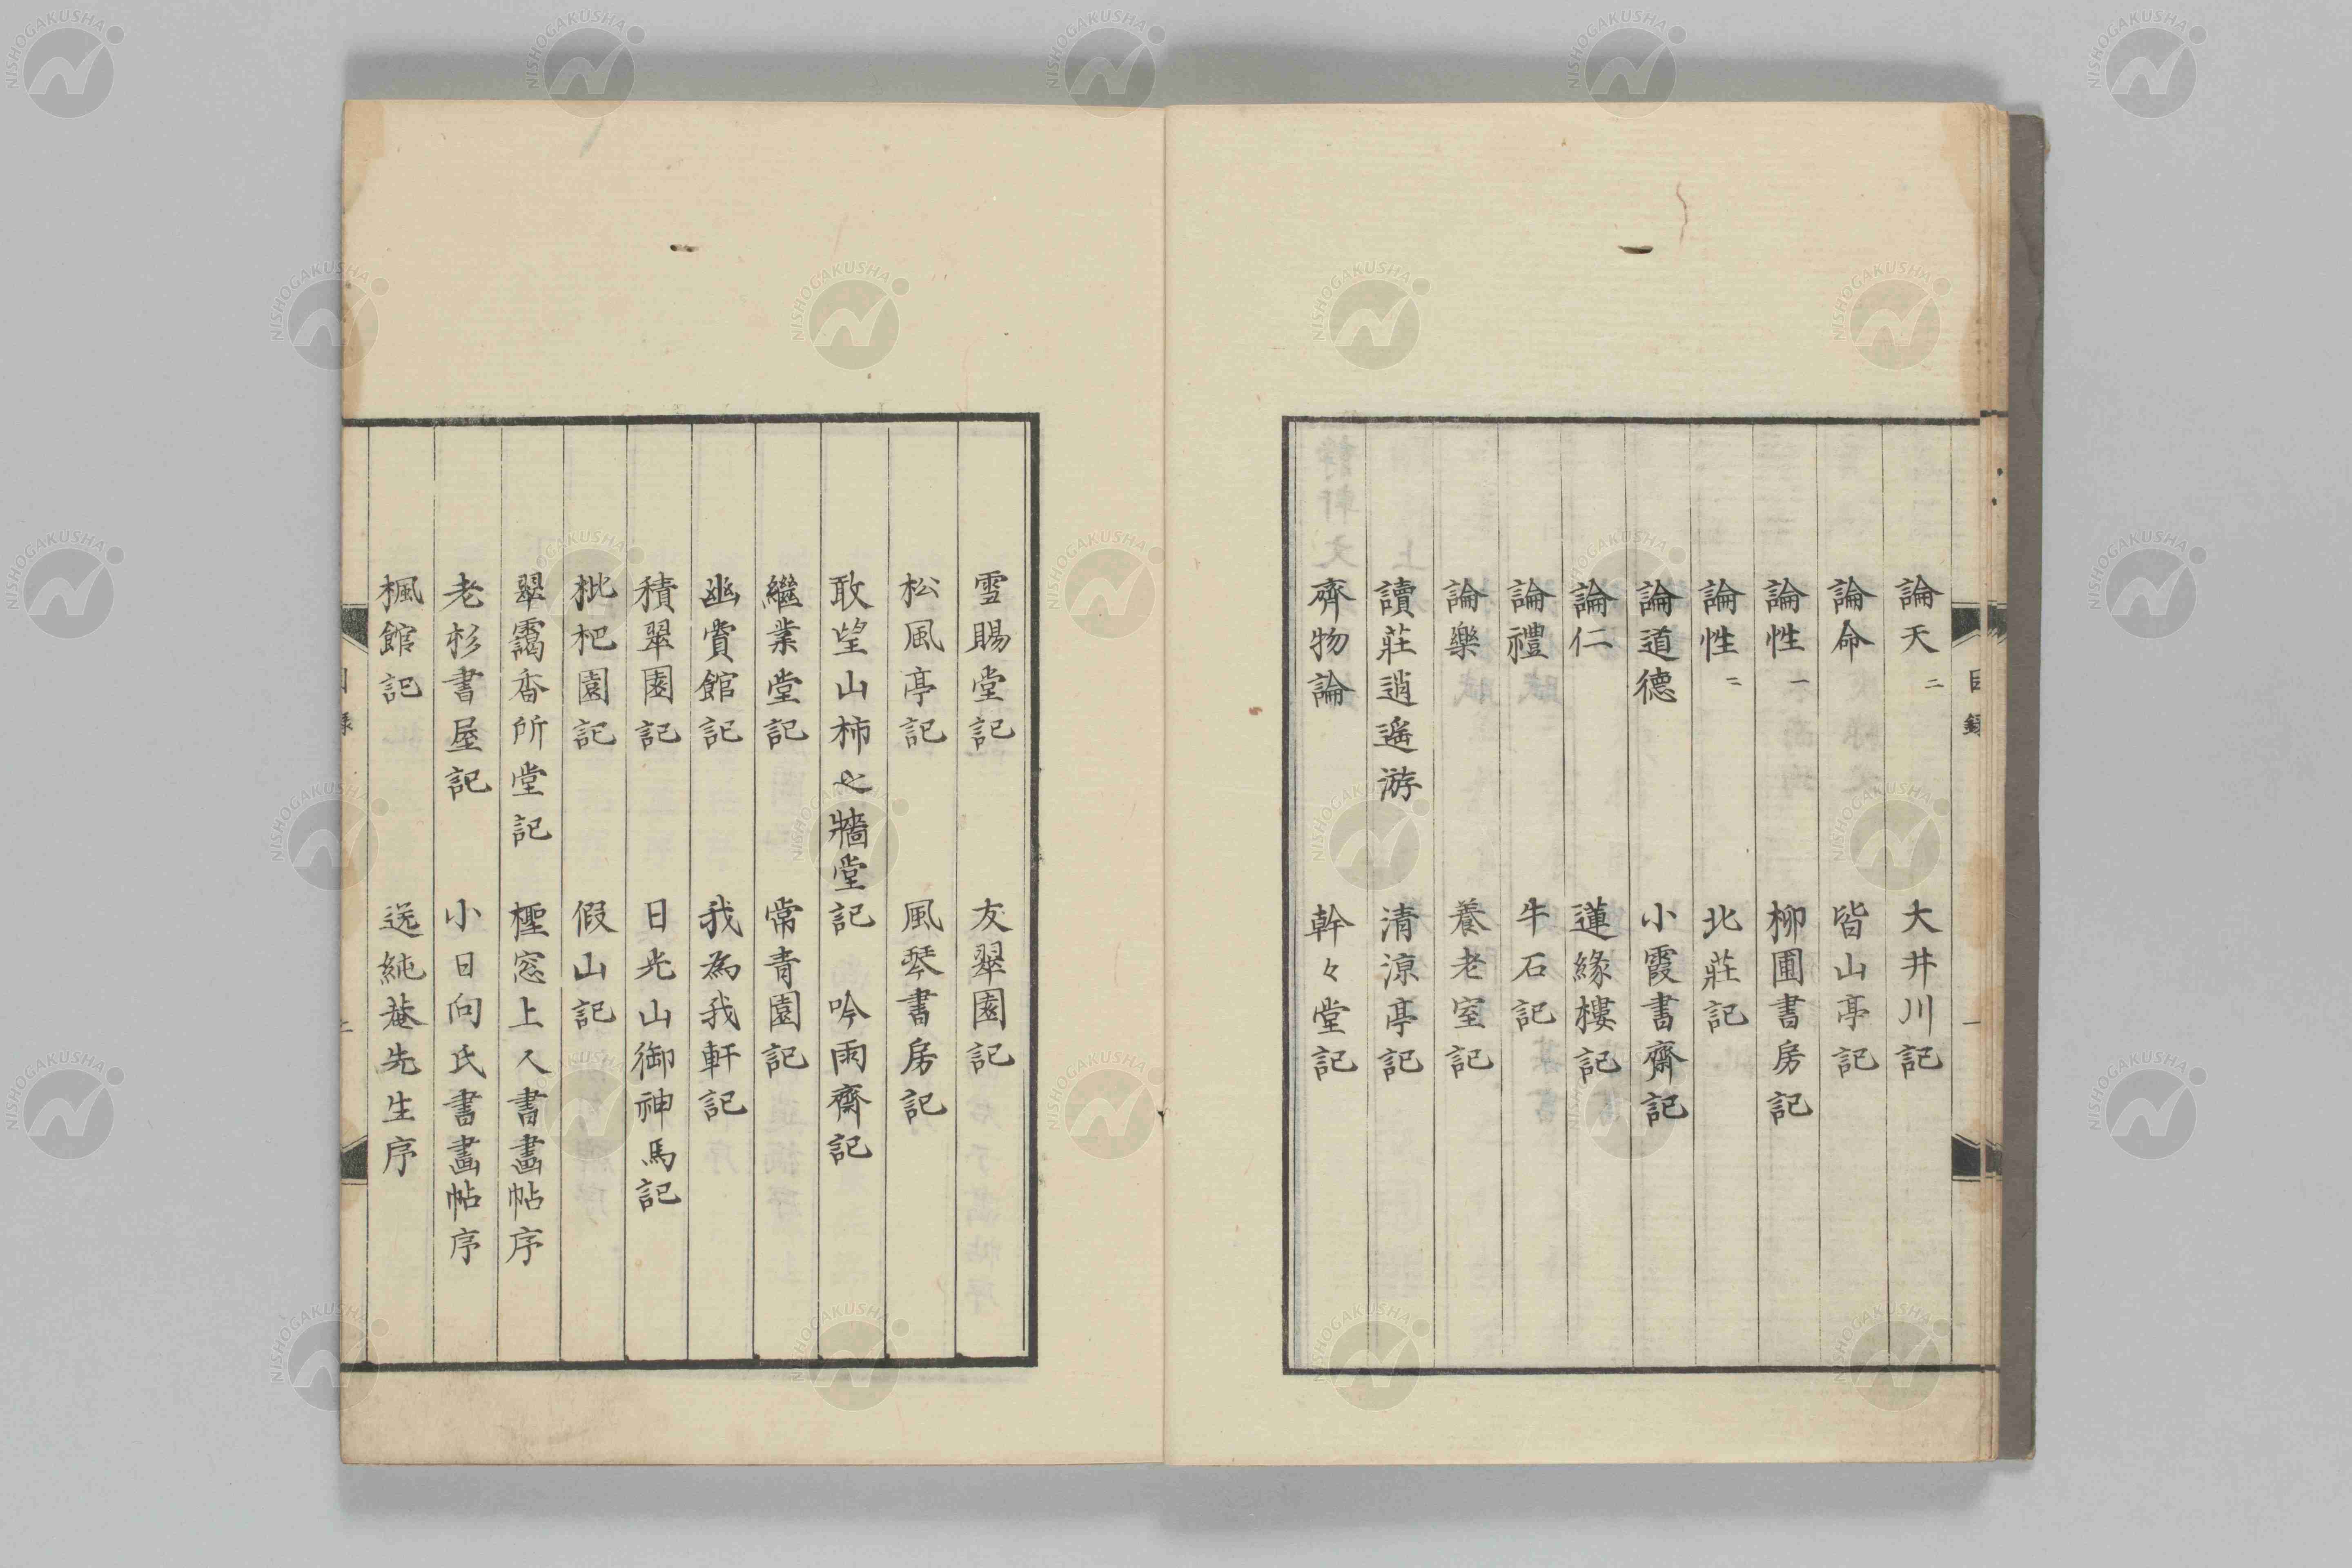 目錄
一
論天二 大井川記
論命 皆山亭記
論性一 柳圃書房記
論性二 北莊記
論道德 小霞書齋記
論仁 蓮緣樓記
論禮 牛石記
論樂 養老室記
讀莊逍遙游 清涼亭記
齊物論 幹々堂記
雪賜堂記 友翠園記
松風亭記 風琴書房記
敢望山柿之牆堂記 吟雨齋記
繼業堂記 常青園記
幽賞館記 我為我軒記
積翠園記 日光山御神馬記
枇杷園記 假山記
翠靄香所堂記 檉窓上人書畵帖序
老杉書屋記 小日向氏書畵帖序
楓館記 送純菴先生序
NISHOGAKUSHA